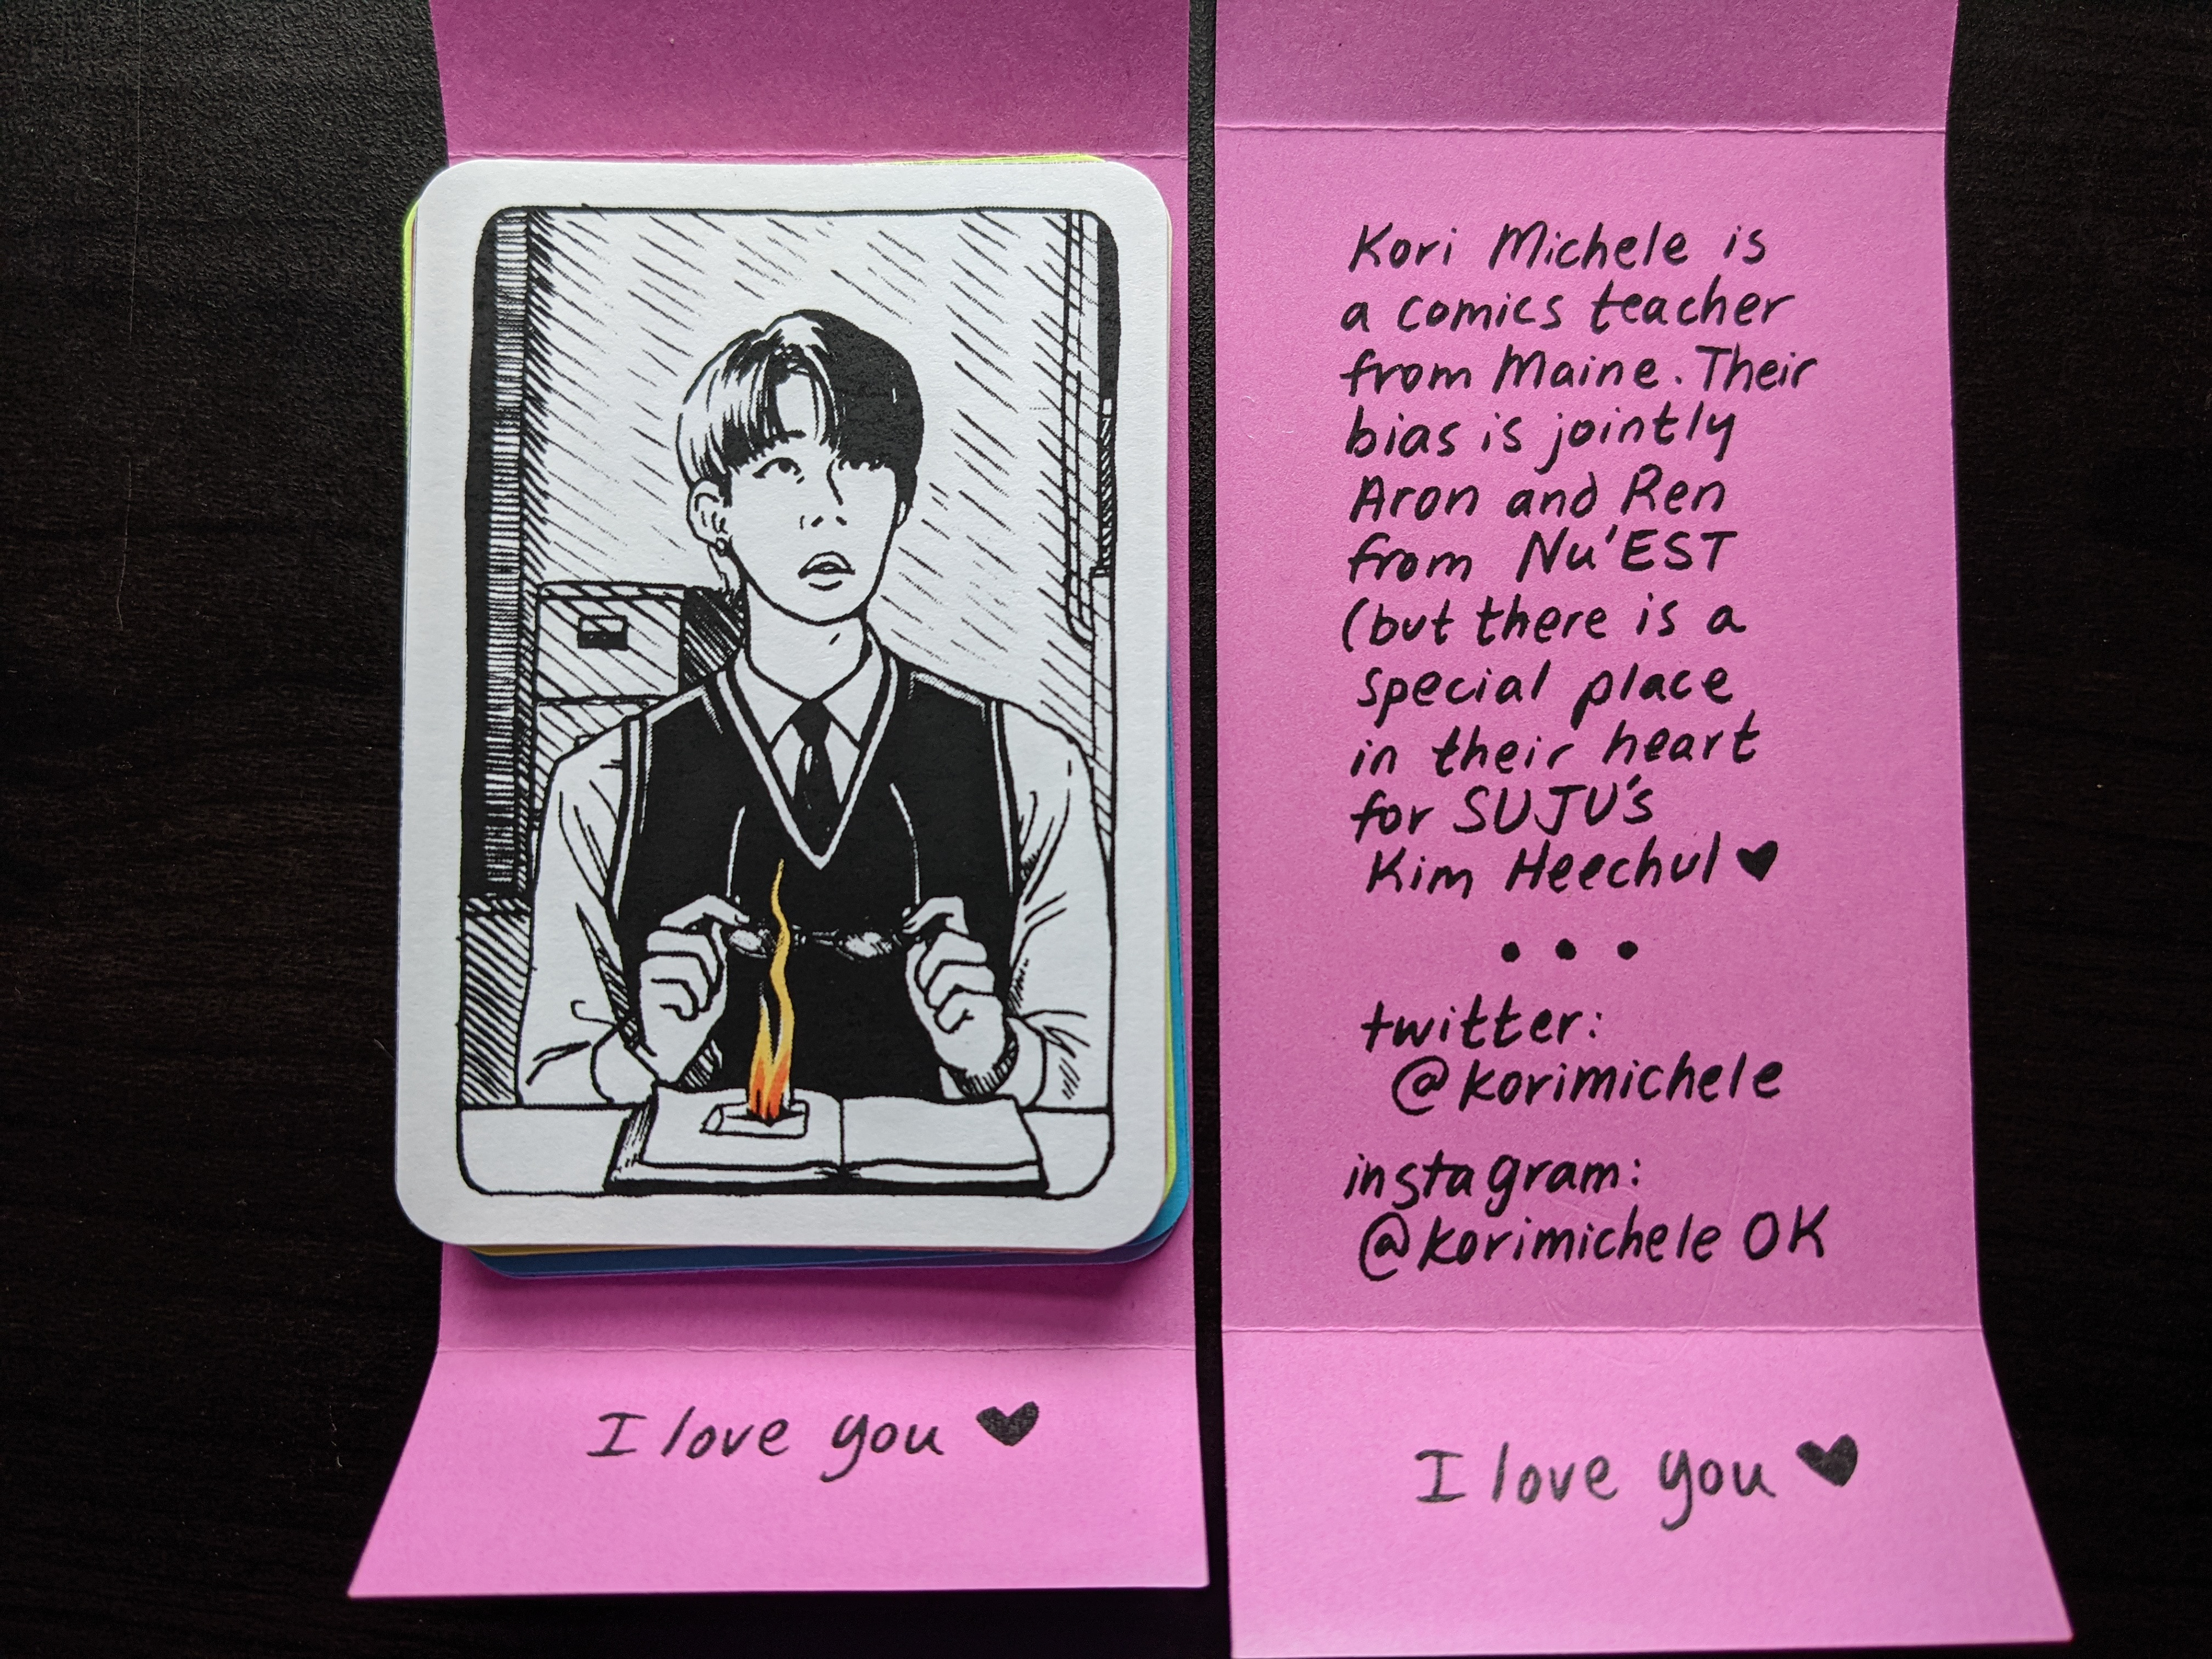 I love you ♥
Kori Michele is
a comics teacher
from Maine. Their
bias is jointly
Aron and Ren
from Nu'EST
(but there is a
special place
in their heart
for SUJU's
Kim Heechul ♥
• • •
twitter:
@korimichele
instagram:
@korimichele OK
I love you ♥